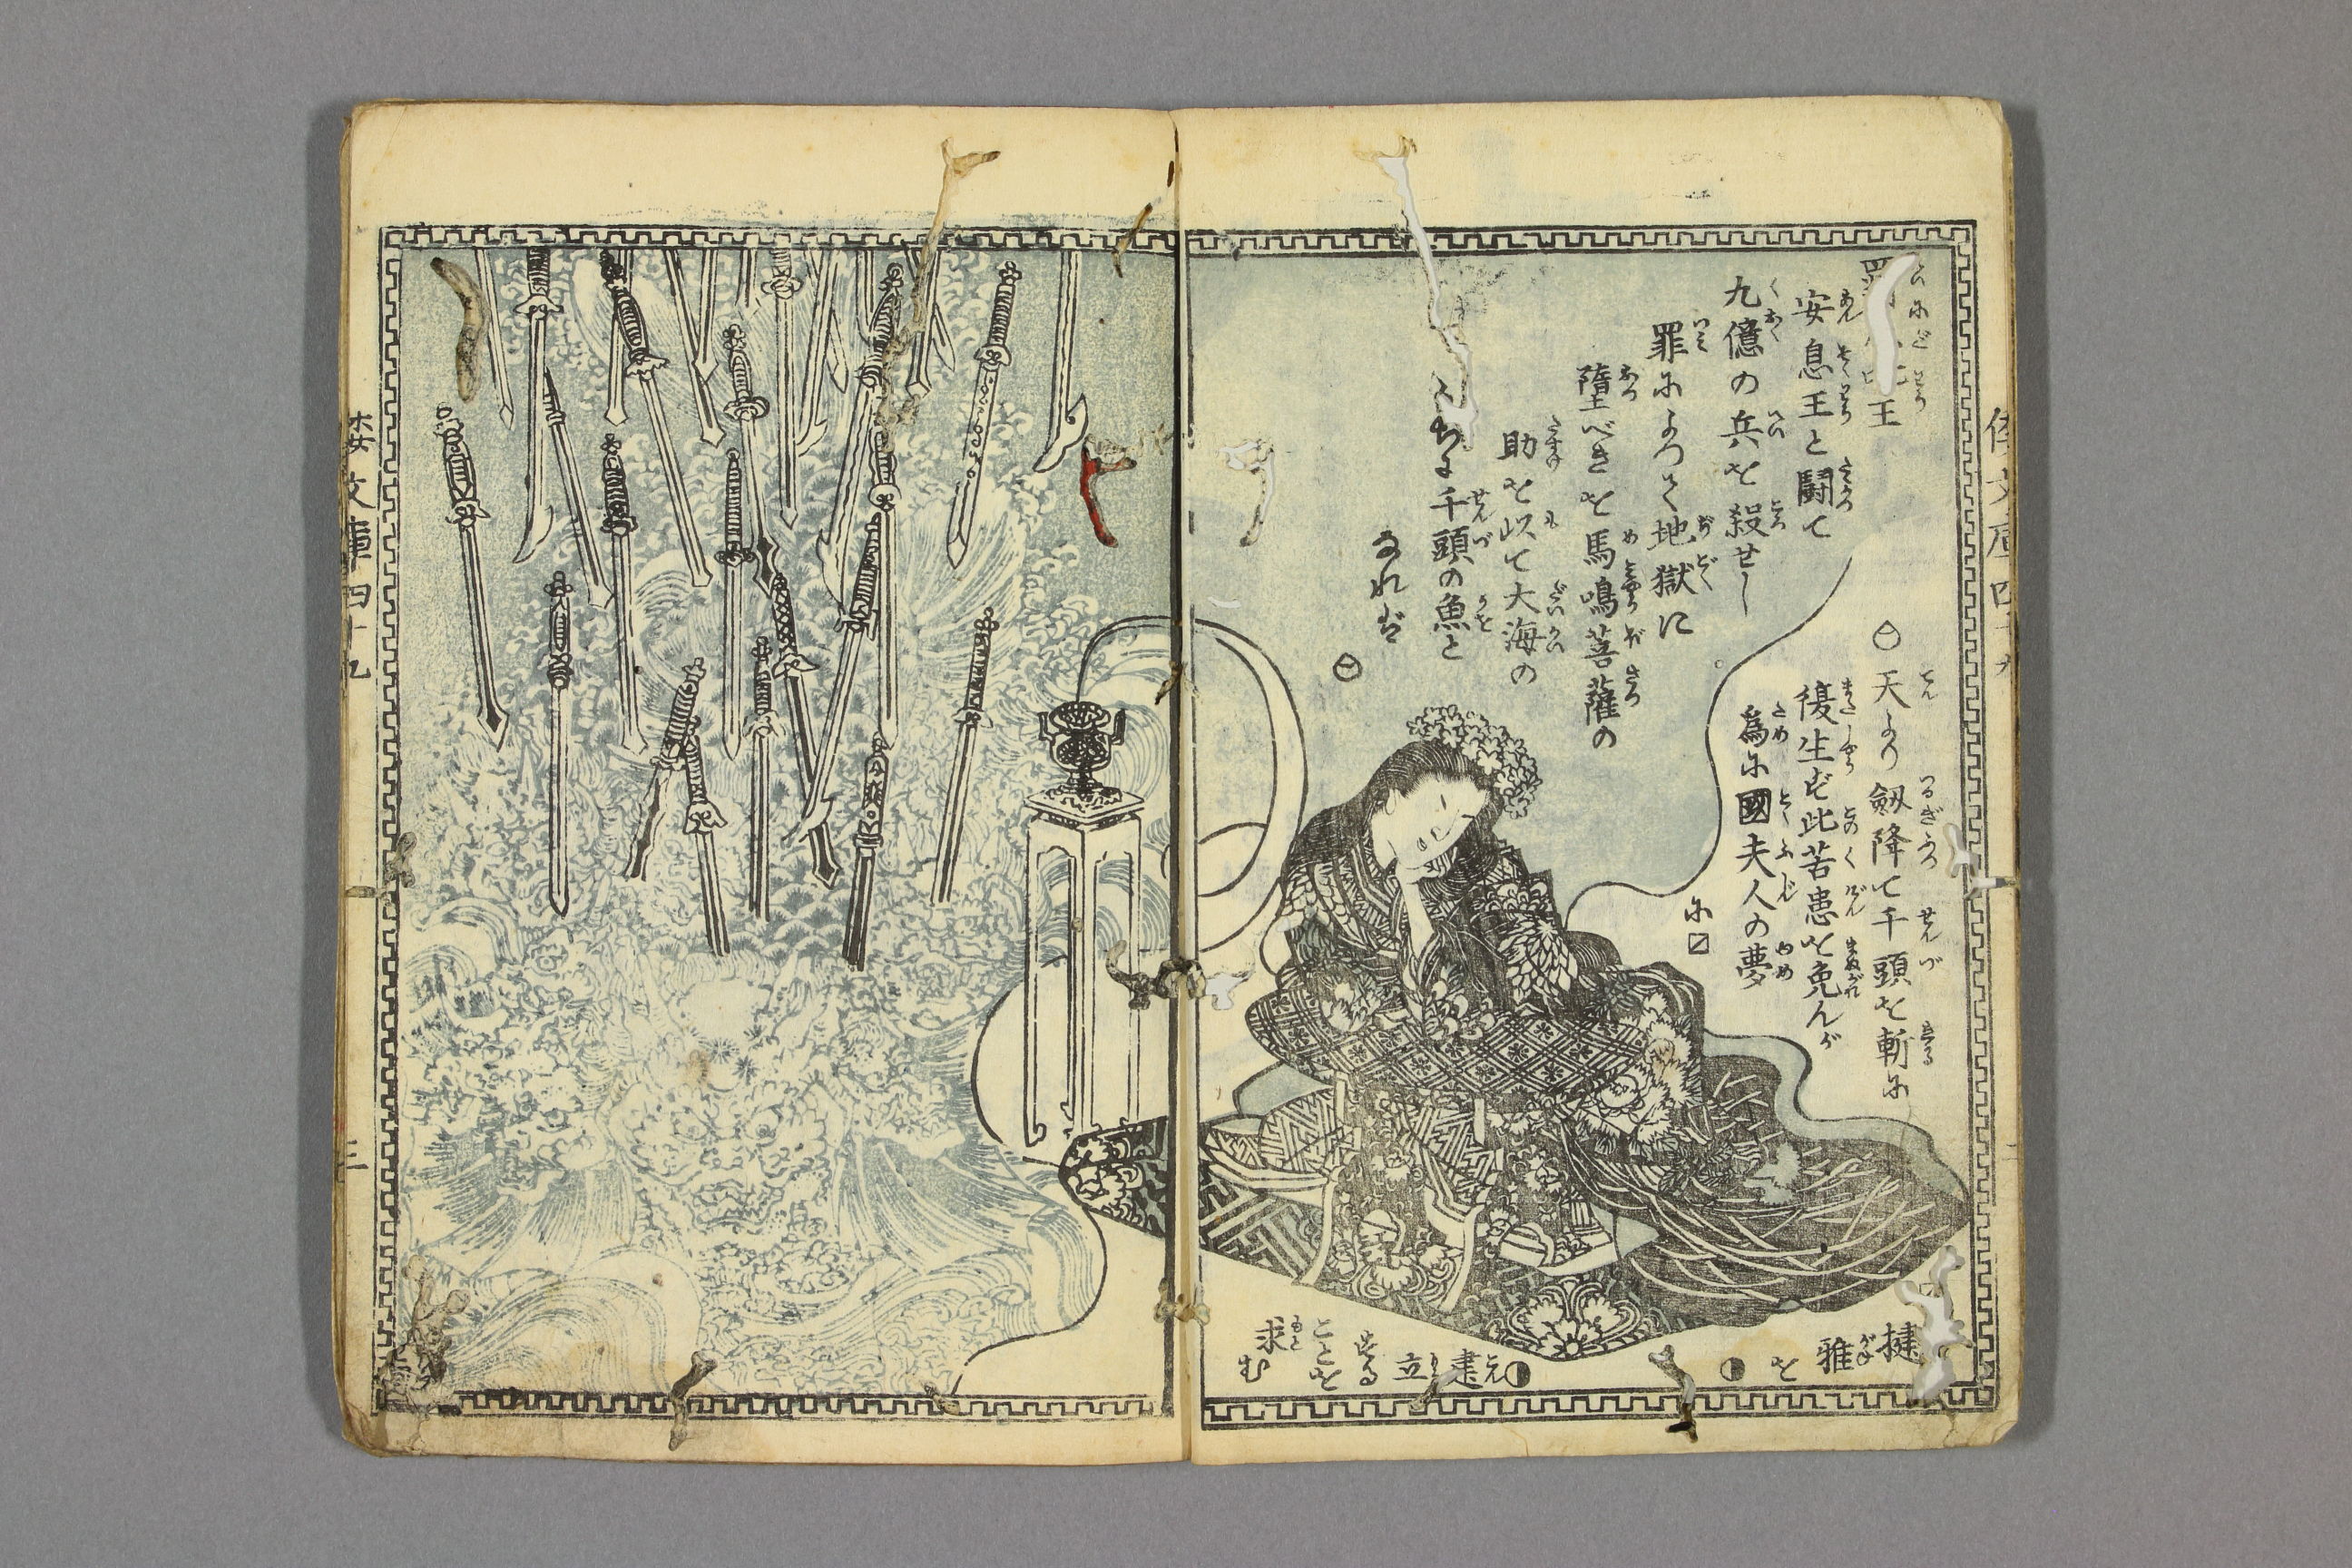 王
安息王と闘て
九億の兵を殺せし
罪によつて地獄に
堕べきを馬鳴菩薩の
助を以て大海の
千頭の魚と
なれば
天より劔降て千頭を斬に
復生ず此苦患を免んが
為に國夫人の夢
に
揵
雅
を
建立
する
ことを
求む
倭文庫四十九
倭文庫四十九
三